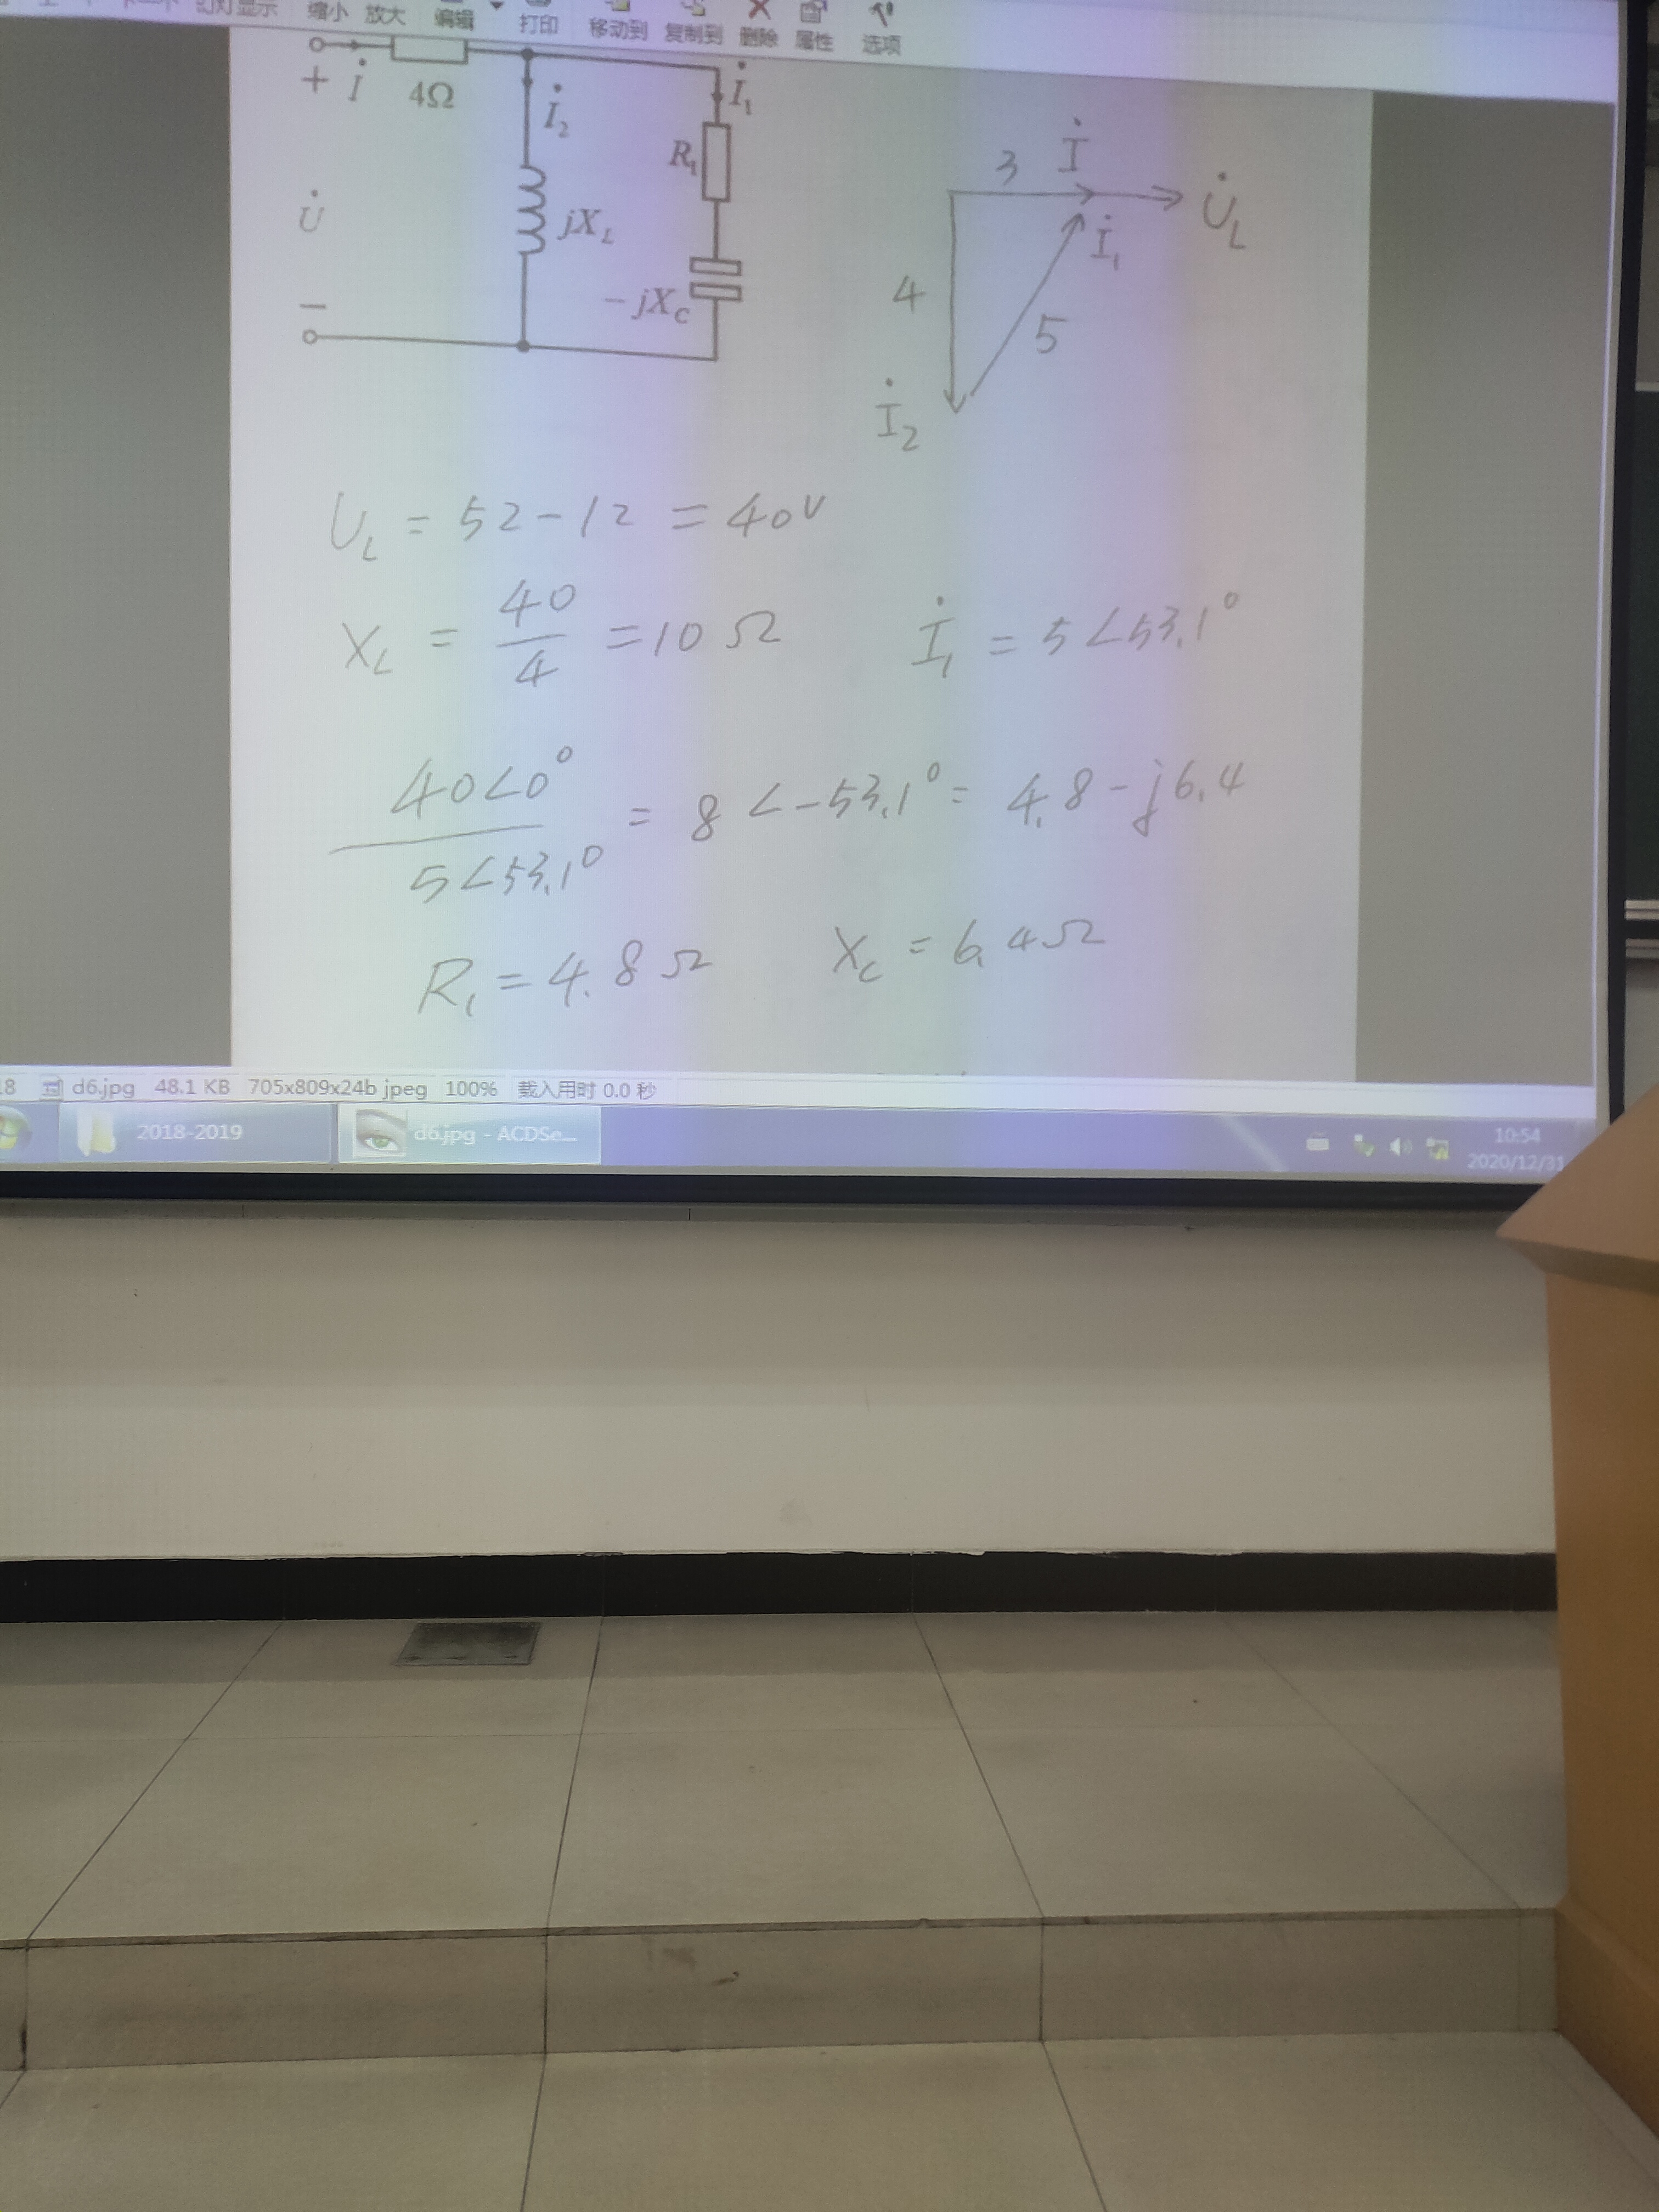 幻灯显示 缩小 放大 编辑 打印 移动到 复制到 删除 属性 选项
+ İ 4Ω İ₂ İ₁
R₁
U̇ jX_L
−jX_C
−
3 İ U̇_L
İ₁
4 5
İ₂
U_L = 52-12 = 40V
X_L = 40/4 = 10Ω İ₁ = 5∠53.1°
40∠0°/5∠53.1° = 8∠-53.1° = 4.8-j6.4
R₁ = 4.8Ω X_C = 6.4Ω
18 d6.jpg 48.1 KB 705x809x24b jpeg 100% 载入用时 0.0 秒
2018-2019 d6.jpg - ACDSe... 10:54
2020/12/31